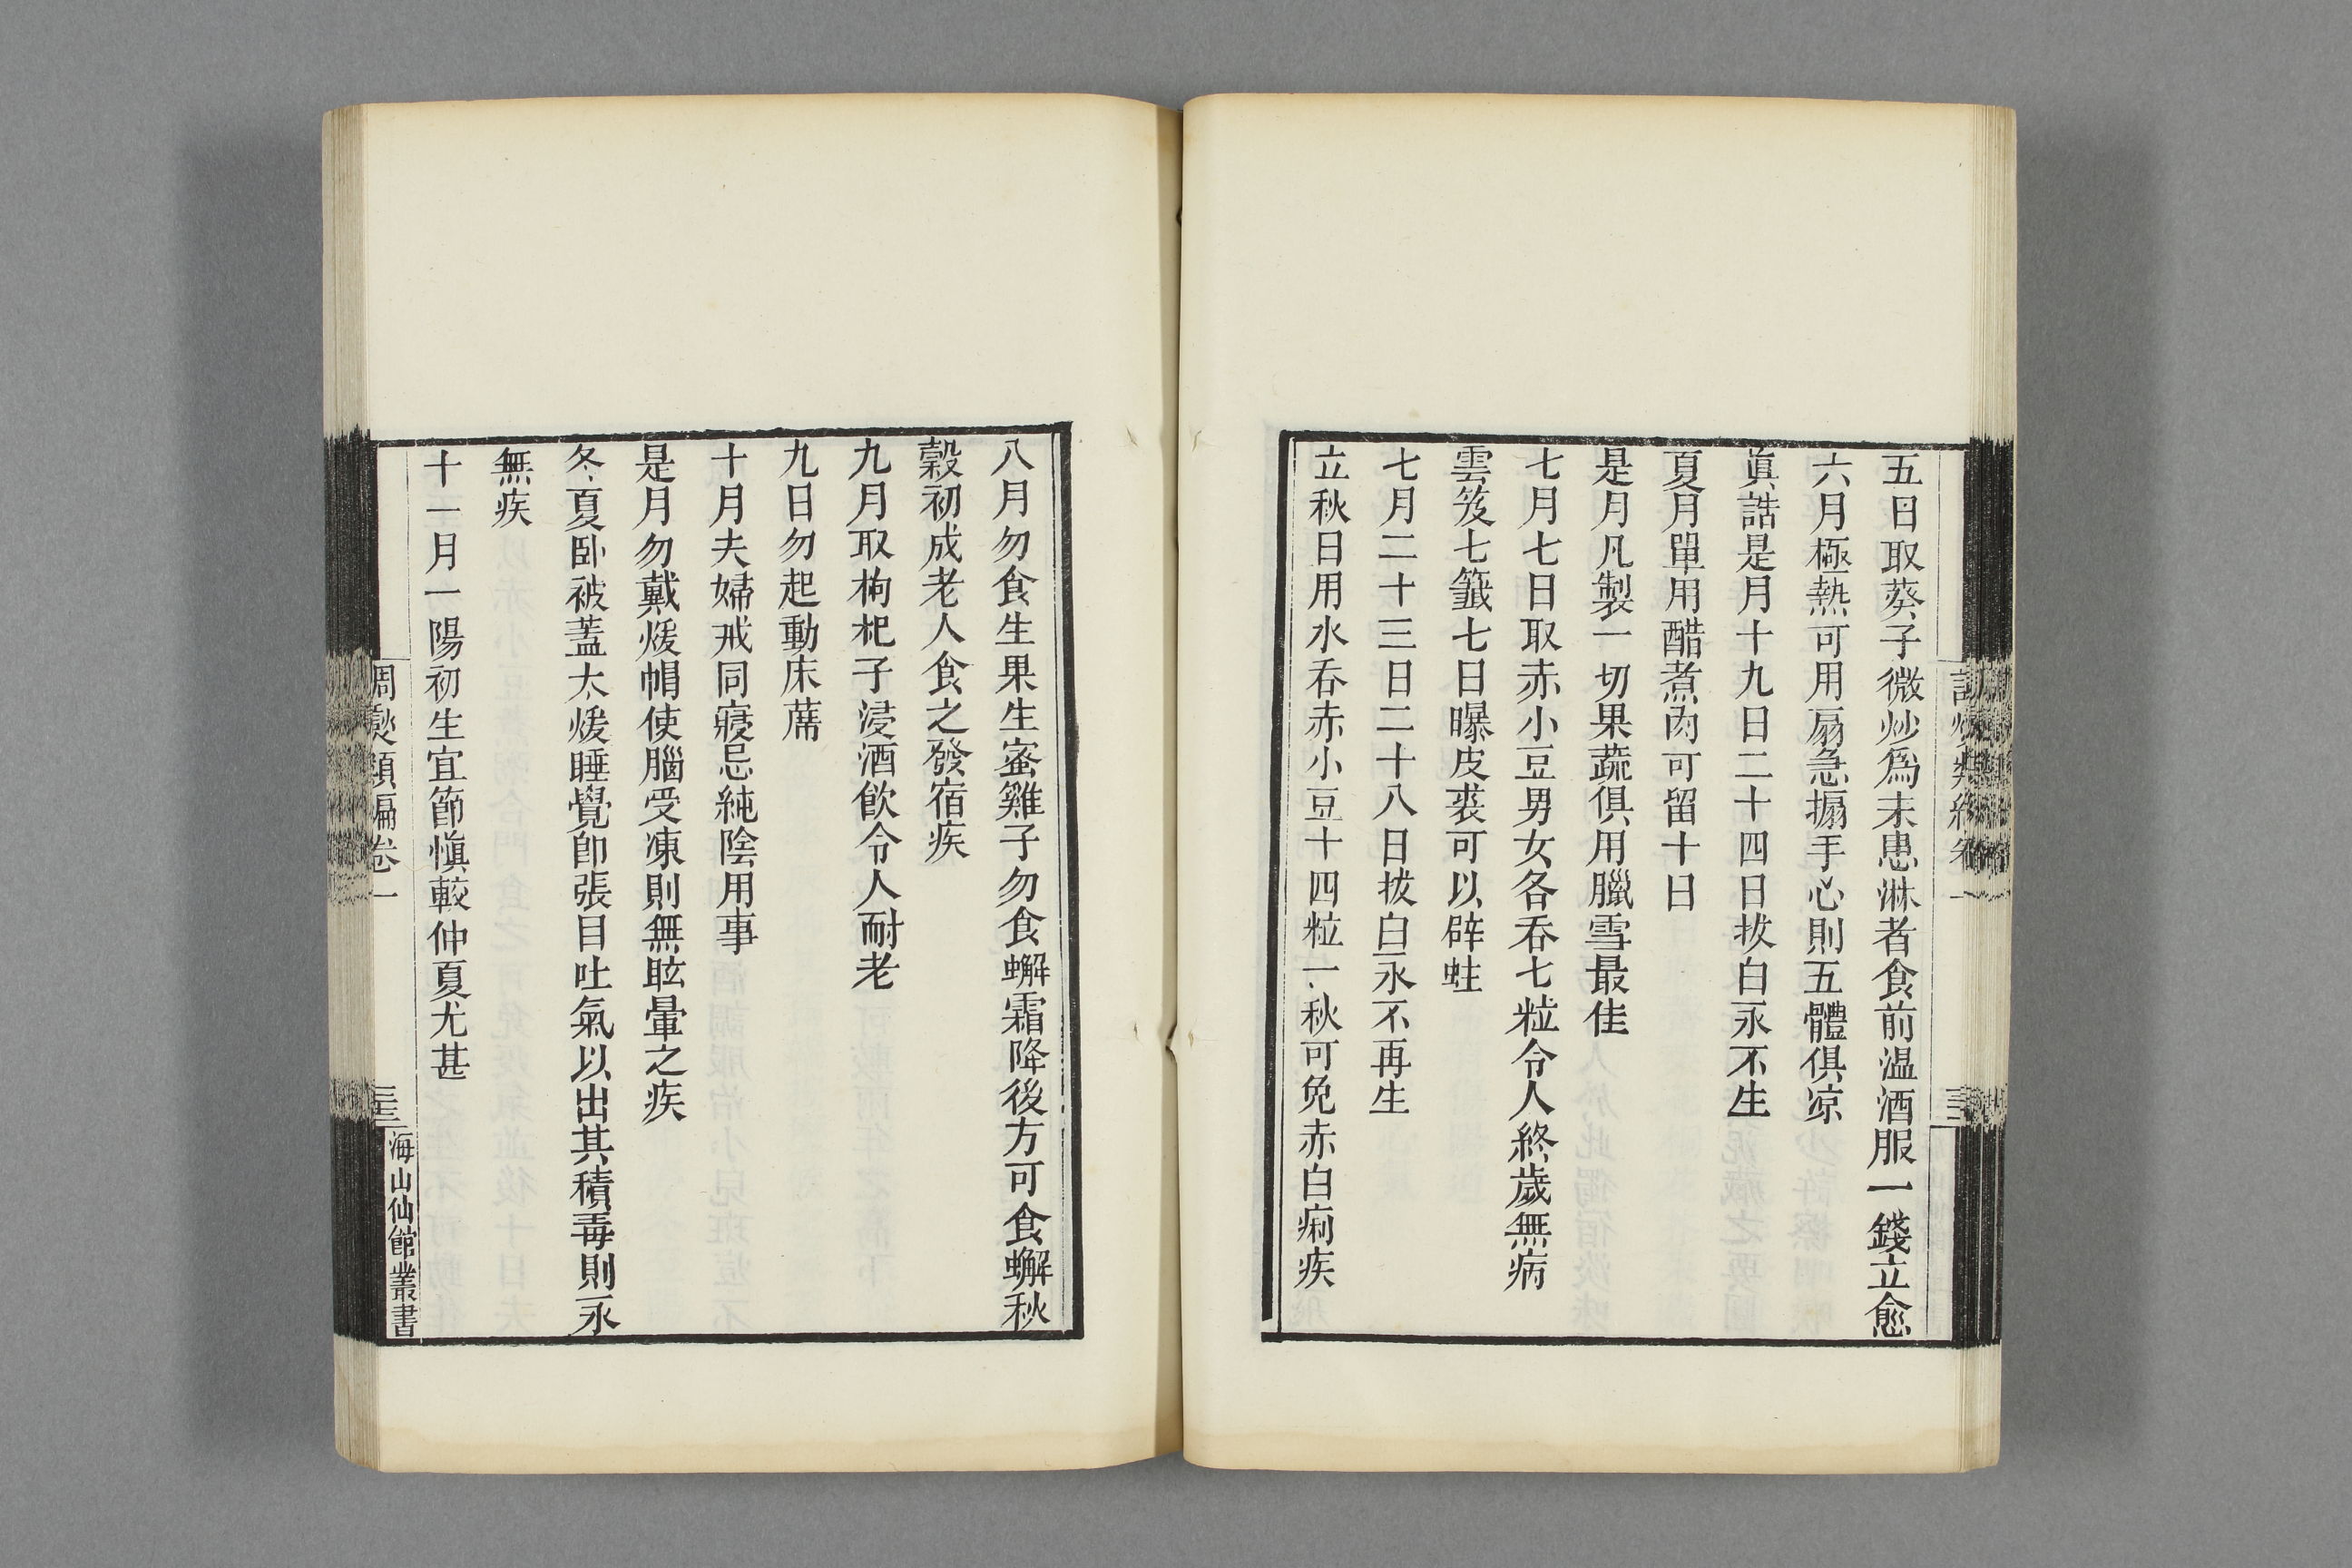 五日取葵子微炒爲末患淋者食前温酒服一錢立愈
六月極熱可用扇急搧手心則五體俱凉
眞誥是月十九日二十四日拔白永不生
夏月單用醋煮肉可留十日
是月凡製一切果蔬俱用臘雪最佳
七月七日取赤小豆男女各吞七粒令人終歲無病
雲笈七籤七日曝皮裘可以辟蛀
七月二十三日二十八日拔白永不再生
立秋日用水吞赤小豆十四粒一秋可免赤白痢疾
八月勿食生果生蜜雞子勿食蠏霜降後方可食蠏秋
穀初成老人食之發宿疾
九月取枸杞子浸酒飮令人耐老
九日勿起動床蓆
十月夫婦戒同寢忌純陰用事
是月勿戴煖帽使腦受凍則無眩暈之疾
冬夏臥被蓋太煖睡覺卽張目吐氣以出其積毒則永
無疾
十一月一陽初生宜節愼較仲夏尤甚
調燮類編卷一
海山仙館叢書